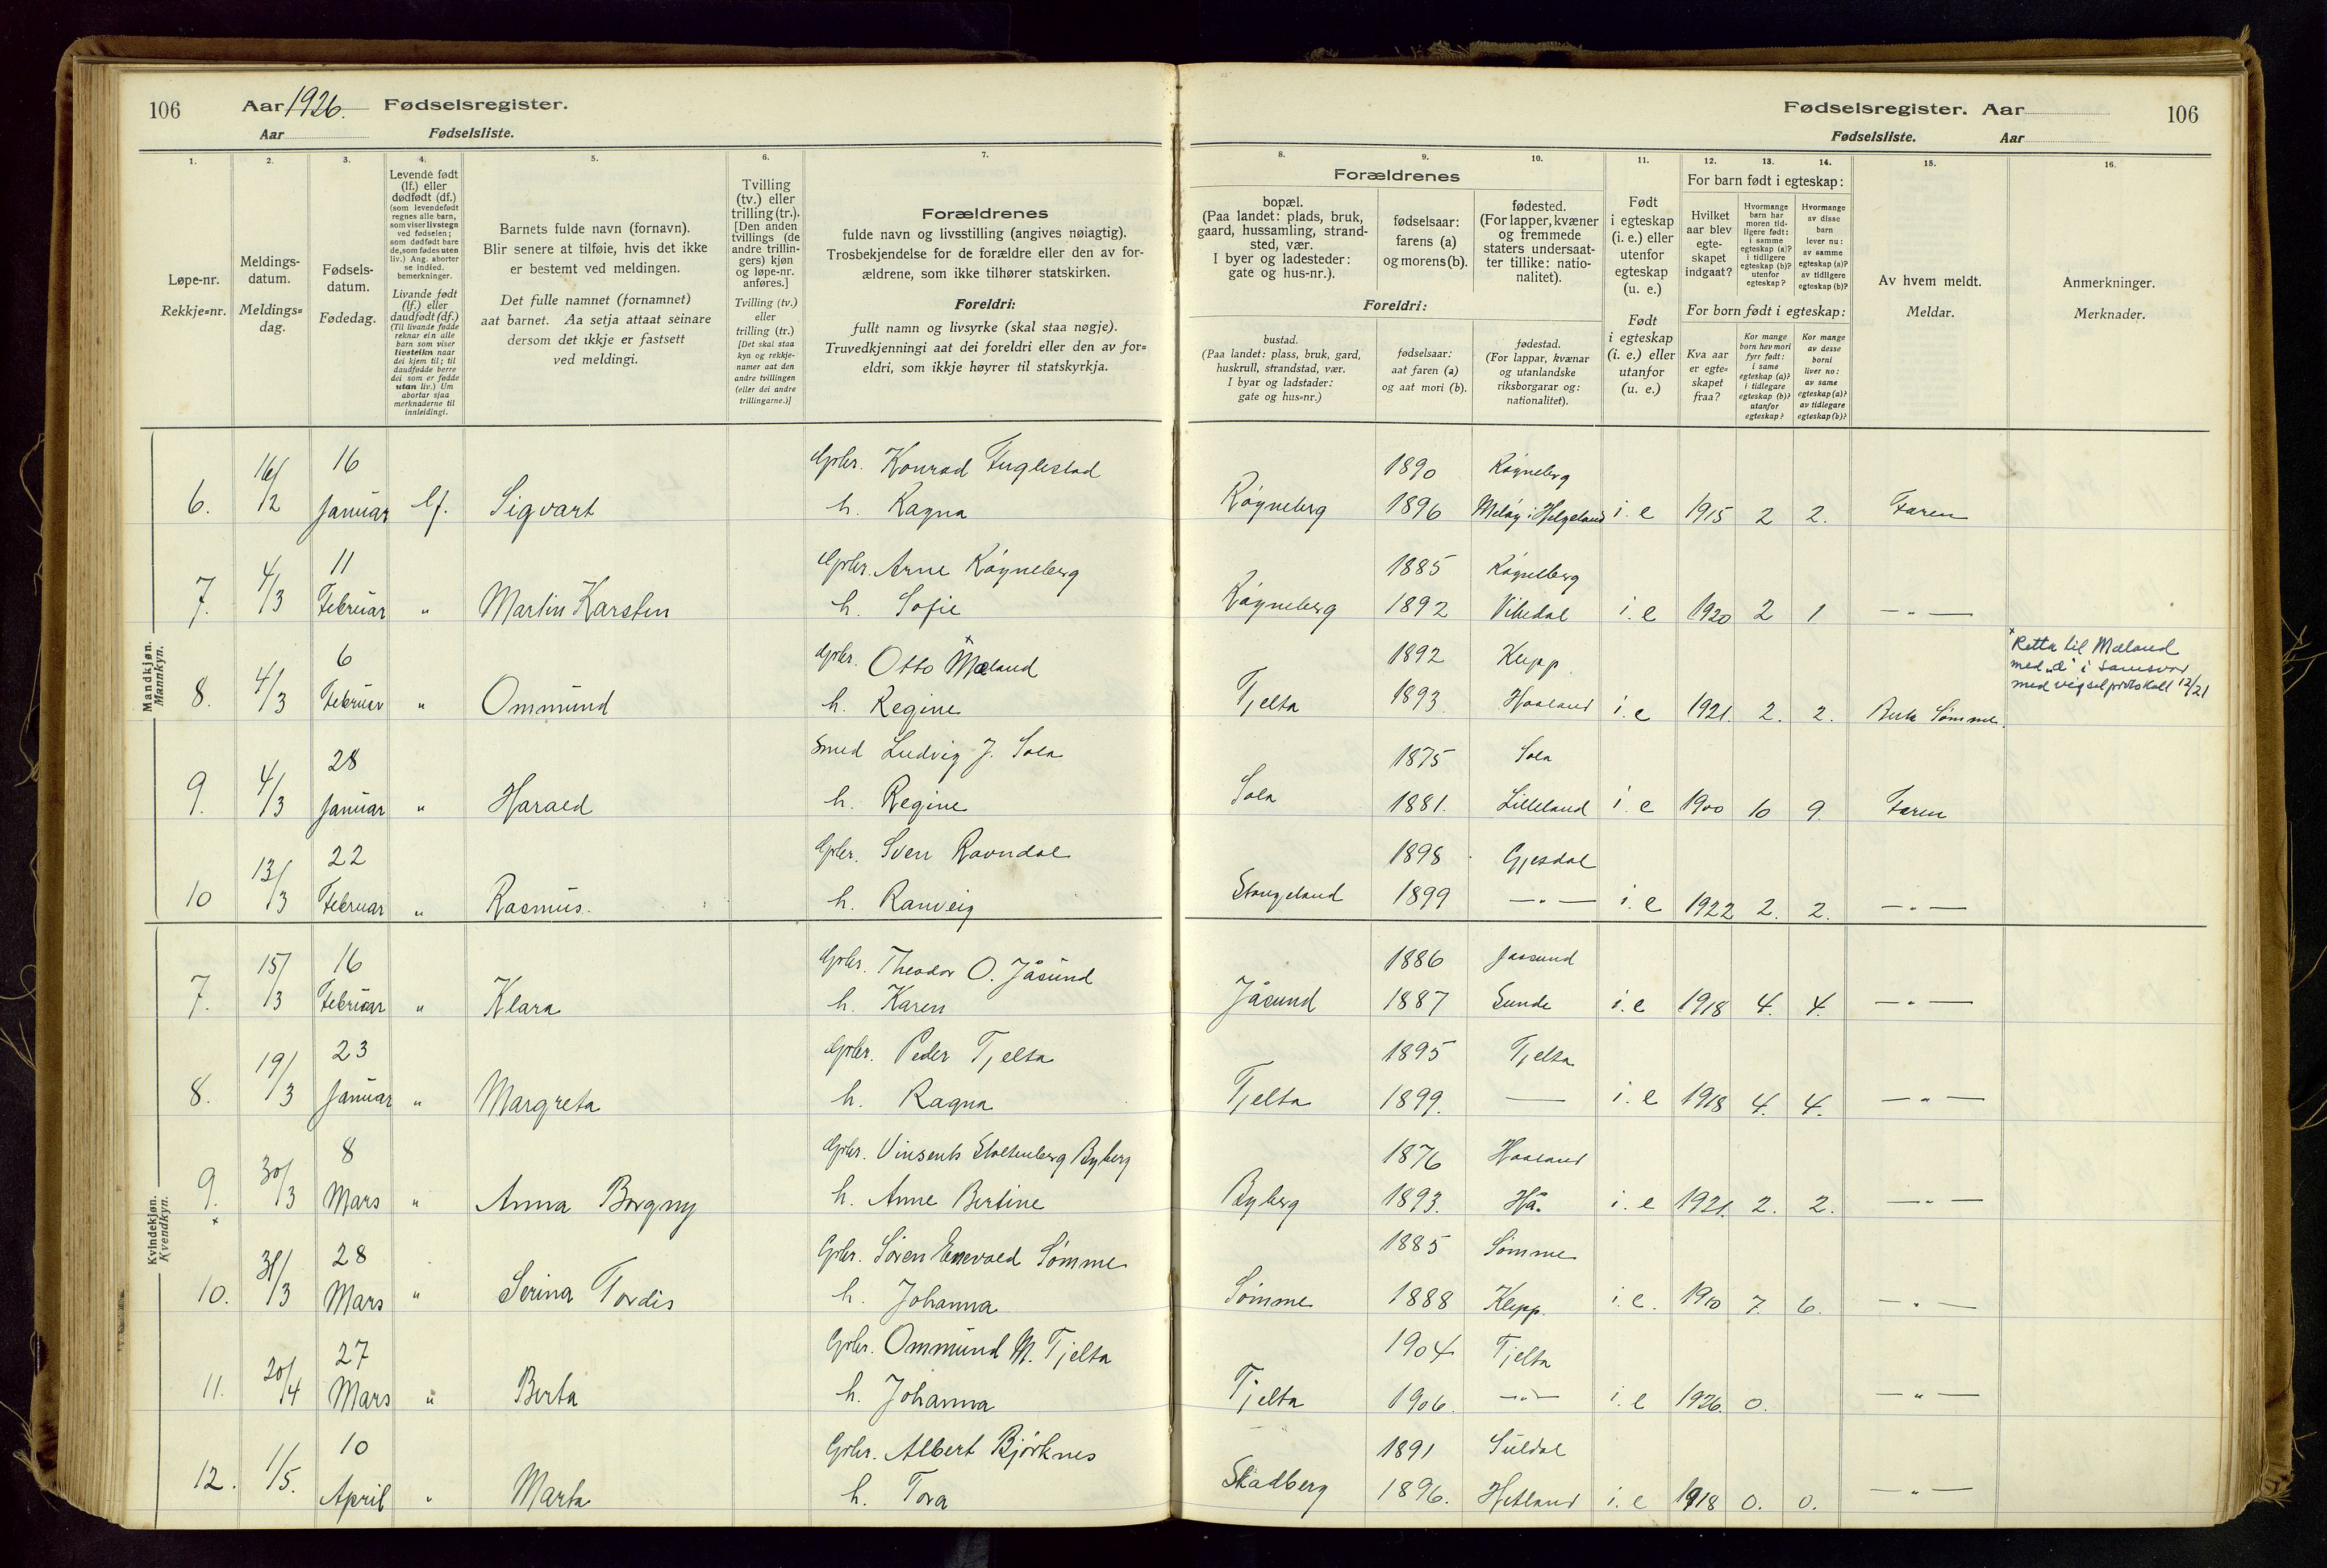 106 Aar 1926. Fødselsregister.
Aar Fødselsliste.
1. 2. 3. 4. 5. 6. 7.
Løpe-nr.
Rekkje=nr.
Meldings-
datum.
Meldings=
dag.
Fødsels-
datum.
Fødedag.
Levende født
(lf.) eller
dødfødt (df.)
(som levendefødt
regnes alle barn,
som viser livstegn
ved fødselen;
som dødfødt bare
de, som fødes uten
liv.) Ang. aborter
se indled.
bemerkninger.
Livande født
(lf.) eller
daudfødt (df.)
(Til livande fødde
reknar ein alle
barn som viser
livsteikn naar
dei kjem til; til
daudfødde berre
dei som er fødde
utan liv.) Um
abortar sjaa
merknaderne til
innleidingi.
Barnets fulde navn (fornavn).
Blir senere at tilføie, hvis det ikke
er bestemt ved meldingen.
Det fulle namnet (fornamnet)
aat barnet. Aa setja attaat seinare
dersom det ikkje er fastsett
ved meldingi.
Tvilling
(tv.) eller
trilling (tr.).
[Den anden
tvillings (de
andre trillin-
gers) kjøn
og løpe-nr.
anføres.]
Tvilling (tv.)
eller
trilling (tr.)
[Det skal staa
kyn og rekkje-
numer aat den
andre tvillingen
(eller dei andre
trillingarne.)]
Forældrenes
fulde navn og livsstilling (angives nøiagtig).
Trosbekjendelse for de forældre eller den av for-
ældrene, som ikke tilhører statskirken.
Foreldri:
fullt namn og livsyrke (skal staa nøgje).
Truvedkjenningi aat dei foreldri eller den av for=
eldri, som ikkje høyrer til statskyrkja.
Mandkjøn.
Mannkyn.
6. 16/12 16 Januar lf. Sigvart Gbr. Konrad Fuglestad
h. Ragna
7. 4/3 11 Februar " Martin Karsten Gbr. Arne Røyneberg
h. Sofie
8. 4/3 6 Februar " Ommund Gbr. Otto Mæland x
h. Regine
9. 4/3 28 Januar " Harald Smed Ludvig J. Sola
h. Regine
10 13/3 22 Februar " Rasmus. Gbr. Sven Ravndal
h. Ranveig
Kvindekjøn.
Kvendkyn.
7. 15/3 16 Februar " Klara Gbr. Theodor O. Jåsund
h. Karen
8. 19/3 23 Januar " Margreta Gbr. Peder Tjelta
h. Ragna
9. x 30/3 8 Mars " Anna Borgny Gbr. Vinsents Stoltenberg Byberg
h. Anne Bertine
10. 31/3 28 Mars " Serina Tordis Gbr. Søren Enevald Sømme
h. Johanna
11. 20/4 27 Mars " Berta Gbr. Ommund M. Tjelta
h. Johanna
12. 1/5. 10 April " Marta Gbr. Albert Bjørknes
h. Tora
Fødselsregister. Aar 106
Fødselsliste. Aar
8. 9. 10. 11. 12. 13. 14. 15. 16.
Forældrenes
bopæl.
(Paa landet: plads, bruk,
gaard, hussamling, strand-
sted, vær.
I byer og ladesteder:
gate og hus-nr.).
fødselsaar:
farens (a)
og morens (b).
fødested.
(For lapper, kvæner
og fremmede
staters undersaat-
ter tillike: natio-
nalitet).
Foreldri:
bustad.
(Paa landet: plass, bruk, gard,
huskrull, strandstad, vær.
I byar og ladstader:
gate og hus=nr.)
fødselsaar:
aat faren (a)
og aat mori (b).
fødestad.
(For lappar, kvænar
og utanlandske
riksborgarar og:
nationalitet).
Født
i egteskap
(i. e.) eller
utenfor
egteskap
(u. e.)
Født
i egteskap
(i. e.) eller
utanfor
(u. e.)
For barn født i egteskap:
Hvilket
aar blev
egte-
skapet
indgaat?
Hvormange
barn har
moren tid-
ligere født:
i samme
egteskap (a)?
i tidligere
egteskap (b)?
utenfor
egteskap?
Hvormange
av disse
barn
lever nu:
av samme
egteskap (a)?
av tidligere
egteskap (b)?
For born født i egteskap:
Kva aar
er egte=
skapet
fraa?
Kor mange
born hev mori
fyrr født:
i same
egteskap (a)?
i tidlegare
egteskap (b)?
utanfor
egteskap?
Kor mange
av desse
borni
liver no:
av same
egteskap (a)?
av tidlegare
egteskap (b)?
Av hvem meldt.
Meldar.
Anmerkninger.
Merknader.
1890 Røyneberg
Røyneberg 1896 Meløy i Helgeland i. e 1915 2 2. Faren
1885 Røyneberg
Røyneberg 1892 Vikedal i. e 1920 2 1 — " —
1892 Klepp.
Tjelta 1893 Haaland i. e 1921. 2. 2. Berta Sømme.
x Retta til Mæland
med „æ" i samsvar
med vigselprotokoll 12/21
1875 Sola
Sola 1881. Lilleland i. e 1900 10 9. Faren
1898 Gjesdal
Stangeland 1899 — " — i. e 1922 2. 2. — " —
1886 Jaasund
Jåsund 1887 Sunde i. e 1918 4. 4. — " —
1895 Tjelta
Tjelta 1899. — i. e 1918 4. 4. — " —
1876 Haaland
Byberg 1893. Hå. i. e 1921. 2. 2. — " —
1885 Sømme
Sømme 1888 Klepp. i. e. 1910 7. 6. — " —
1904 Tjelta
Tjelta 1906. — " — i. e 1926. 0. — " —
1891 Suldal
Skadberg 1896. Hetland i. e 1918 0. 0. — " —